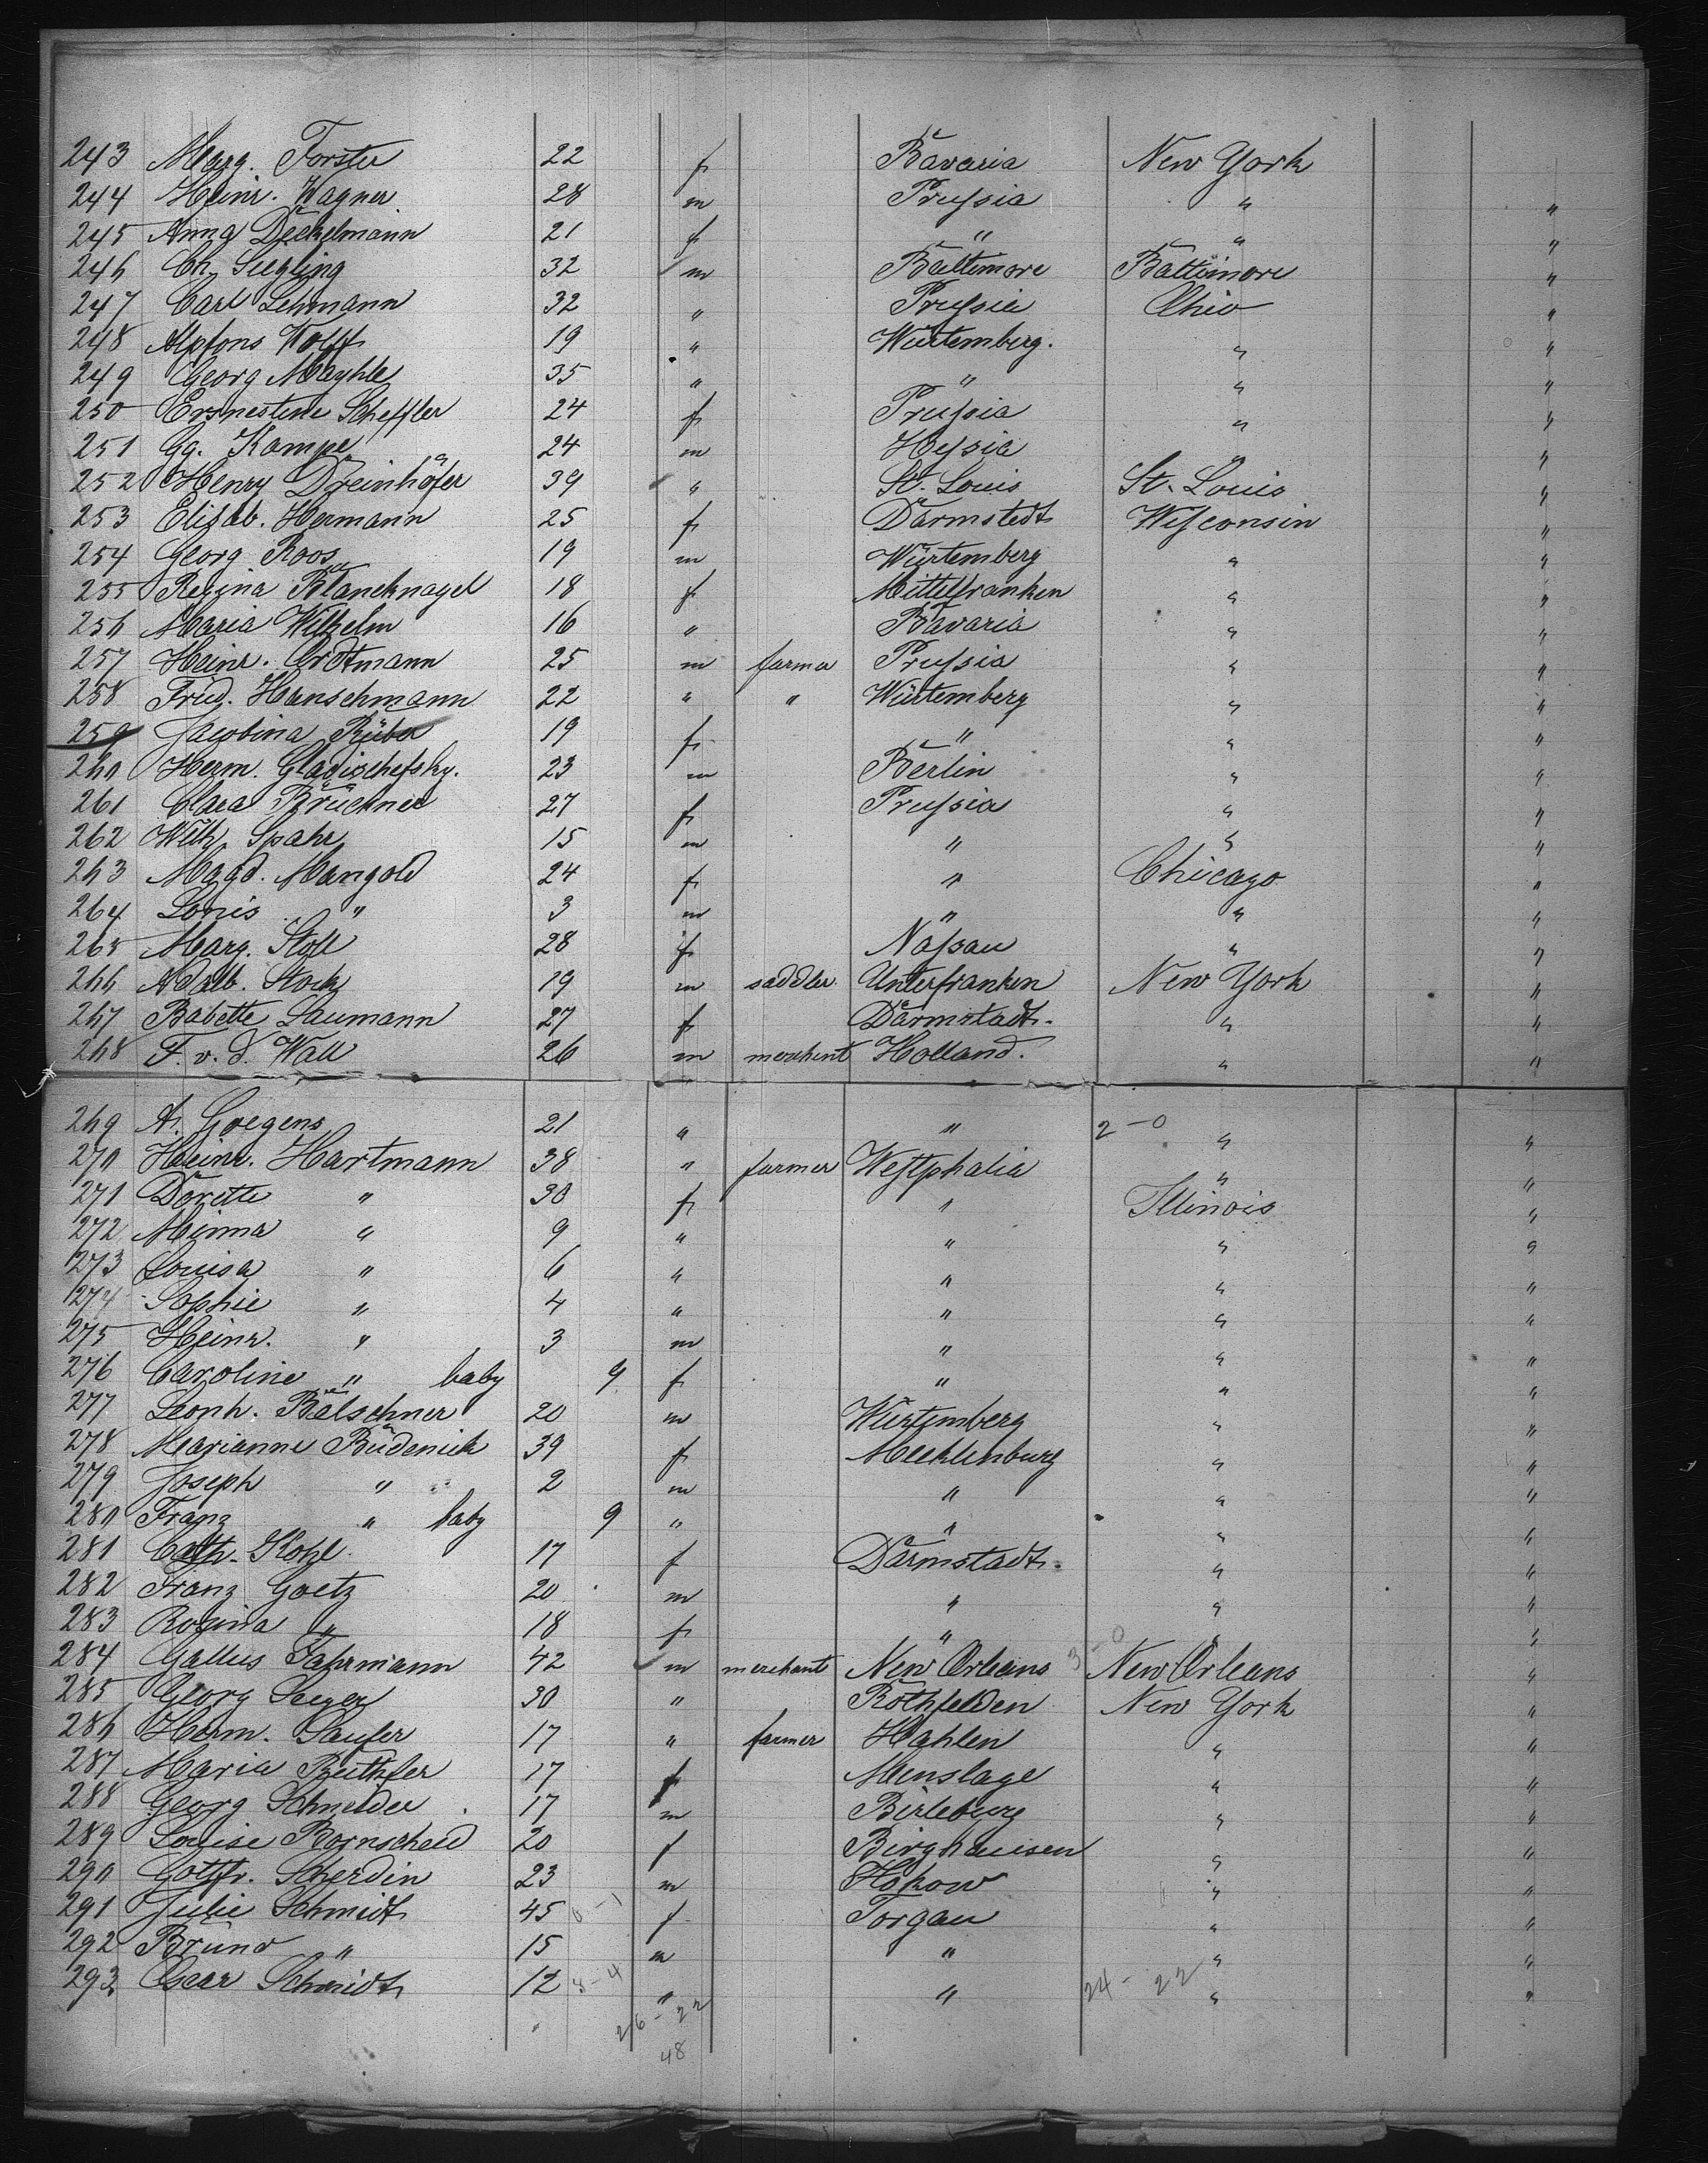 243 Marg. Forster 22 f Bavaria New York
244 Heinr. Wagner 28 m Prussia " "
245 Anna Deckelmann 21 f " " "
246 Ch. Siegling 32 m Baltimore Baltimore "
247 Carl Lehmann 32 " Prussia Ohio "
248 Alpfons Wolff 19 " Würtemberg. " "
249 Georg Mayhle 35 " " " "
250 Ernestine Scheffler 24 f Prussia " "
251 Gg. Kampe 24 m Hessia " "
252 Henry Dreinhöfer 39 " St. Louis St. Louis "
253 Elisab. Hermann 25 f Darmstedt Wisconsin "
254 Georg Roos 19 m Würtemberg " "
255 Regina Blancknagel 18 f Mittelfranken " "
256 Maria Wilhelm 16 " Bavaria " "
257 Heinr. Ordtmann 25 m farmer Prussia " "
258 Fried. Hanschmann 22 " " Würtemberg " "
259 Jacobina Rüber 19 f " " "
260 Herm. Gladischefsky. 23 m Berlin " "
261 Clara Brückner 27 f Prussia " "
262 Wilh. Spahr 15 m " " "
263 Magd. Mangold 24 f " Chicago "
264 Louis " 3 m " " "
265 Marg. Stoll 28 f Nassau " "
266 Adalb. Stock 19 m saddler Unterfranken New York "
267 Babette Laumann 27 f Darmstadt. " "
268 F. v. d. Wall 26 m merchant Holland. " "
269 A. Goegens 21 " " 2-0 " "
270 Heinr. Hartmann 38 " farmer Westphalia " "
271 Dorette " 30 f " Illinois "
272 Minna " 9 " " " "
273 Louisa " 6 " " " "
274 Sophie " 4 " " " "
275 Heinr. " 3 m " " "
276 Caroline " baby 9 f " " "
277 Leonh. Bälschner 20 m Würtemberg " "
278 Marianne Büdenick 39 f Mecklenburg " "
279 Joseph " 2 m " " "
280 Franz " baby 9 " " " "
281 Cath. Kohl 17 f Darmstadt. " "
282 Franz Goetz 20 m " " "
283 Rosina " 18 f " " "
284 Gallus Fahrmann 42 m merchant New Orleans 3-0 New Orleans "
285 Georg Seeger 30 " Rothfelden New York "
286 Herm. Saufer 17 " farmer Hahlen " "
287 Maria 17 f Menslage " "
288 Georg Schneider 17 m Birleburg " "
289 Louise Bornscheid 20 f Birghausen " "
290 Gottfr. Scherdin 23 m Hokow " "
291 Julie Schmidt 45 f Torgau " "
292 Bruno " 15 m " " "
293 Oscar Schmidt 12 3-4 " " 24-22 " "
" 26-22
48